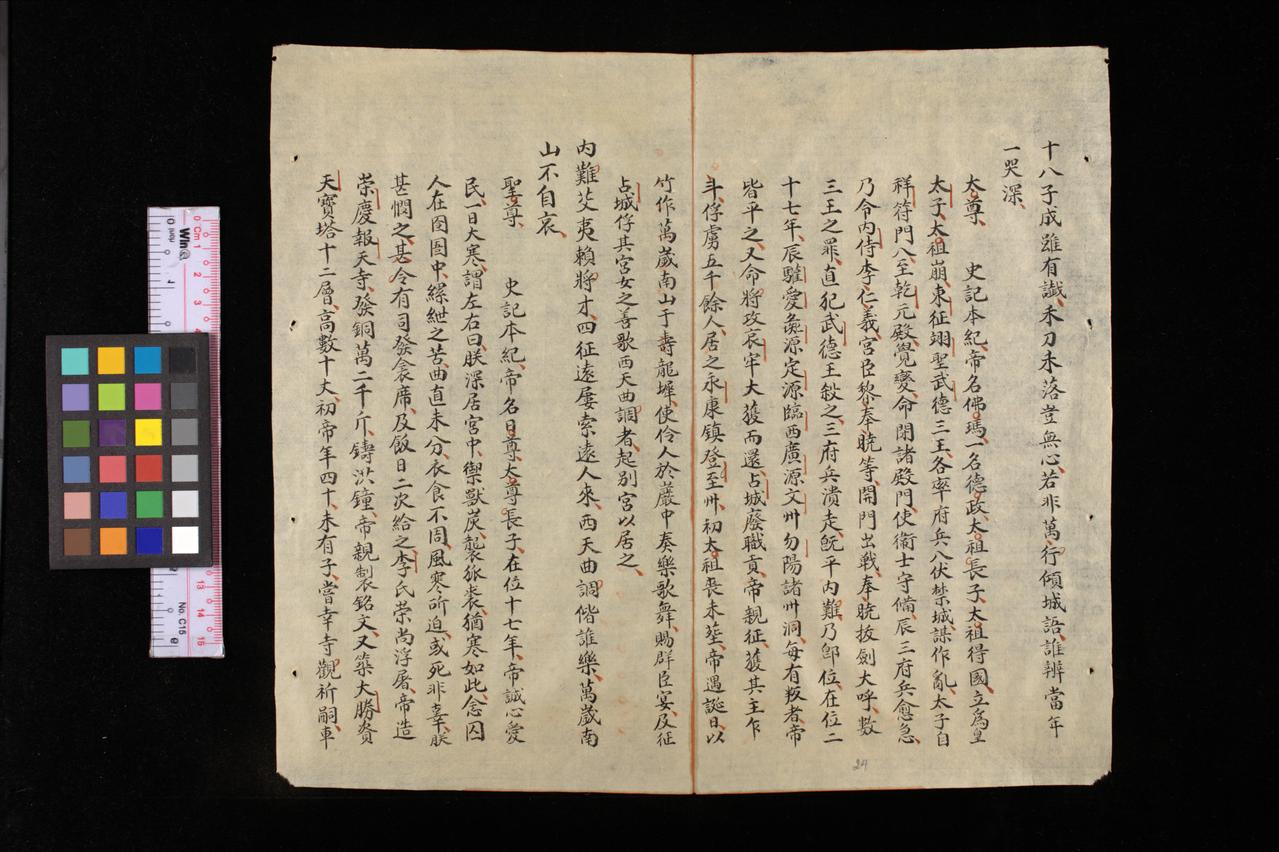 十八子成雖有讖、禾刀木落豈無心、若非萬行傾城語、誰辨當年
一哭深、
太尊、 史記本紀、帝名佛瑪、一名德政、太祖長子、太祖得國、立爲皇
太子、太祖崩、東征翊聖武德三王、各率府兵入伏禁城謀作亂、太子自
祥符門入至乾元殿、覺變、命閉諸殿門、使衛士守備、辰三府兵愈急、
乃令内侍李仁義、宮臣黎奉曉等、開門出戰、奉曉拔劍大呼、數
三王之罪、直犯武德王殺之、三府兵潰走、旣平内難、乃卽位、在位二
十七年、辰驩愛㒞源定源臨西廣源文州勿陽諸州洞、每有叛者、帝
皆平之、又命將攻哀牢、大獲而還、占城廢職貢、帝親征、獲其主乍
斗、俘虜五千餘人、居之永康鎮登至州、初太祖喪未塟、帝遇誕日、以
竹作萬歲南山于壽龍墀、使伶人於巖中奏樂歌舞、賜群臣宴、及征
占城、俘其宮女之善歌西天曲調者、起别宮以居之、
内難芟夷賴將才、四征遠屡索遠人來、西天曲調偕誰樂、萬歲南
山不自哀、
聖尊、 史記本紀、帝名日尊、太尊長子、在位十七年、帝誠心愛
民、一日大寒、謂左右曰、朕深居宮中、禦獸炭、襲狐裘、猶寒如此、念囚
人在囹圄中、縲紲之苦、曲直未分、衣食不同、風寒所迫、或死非辜、朕
甚憫之甚、令有司發衾席、及飯日二次給之、李氏崇尚浮屠、帝造
崇慶報天寺、發銅萬二千斤、鑄洪鐘、帝親制衮銘文、又築大勝資
天寶塔十二層、高數十丈、初帝年四十未有子、嘗幸寺觀祈嗣、車
24
Cm
0
1
2
3
4
13
14
15
No. C15